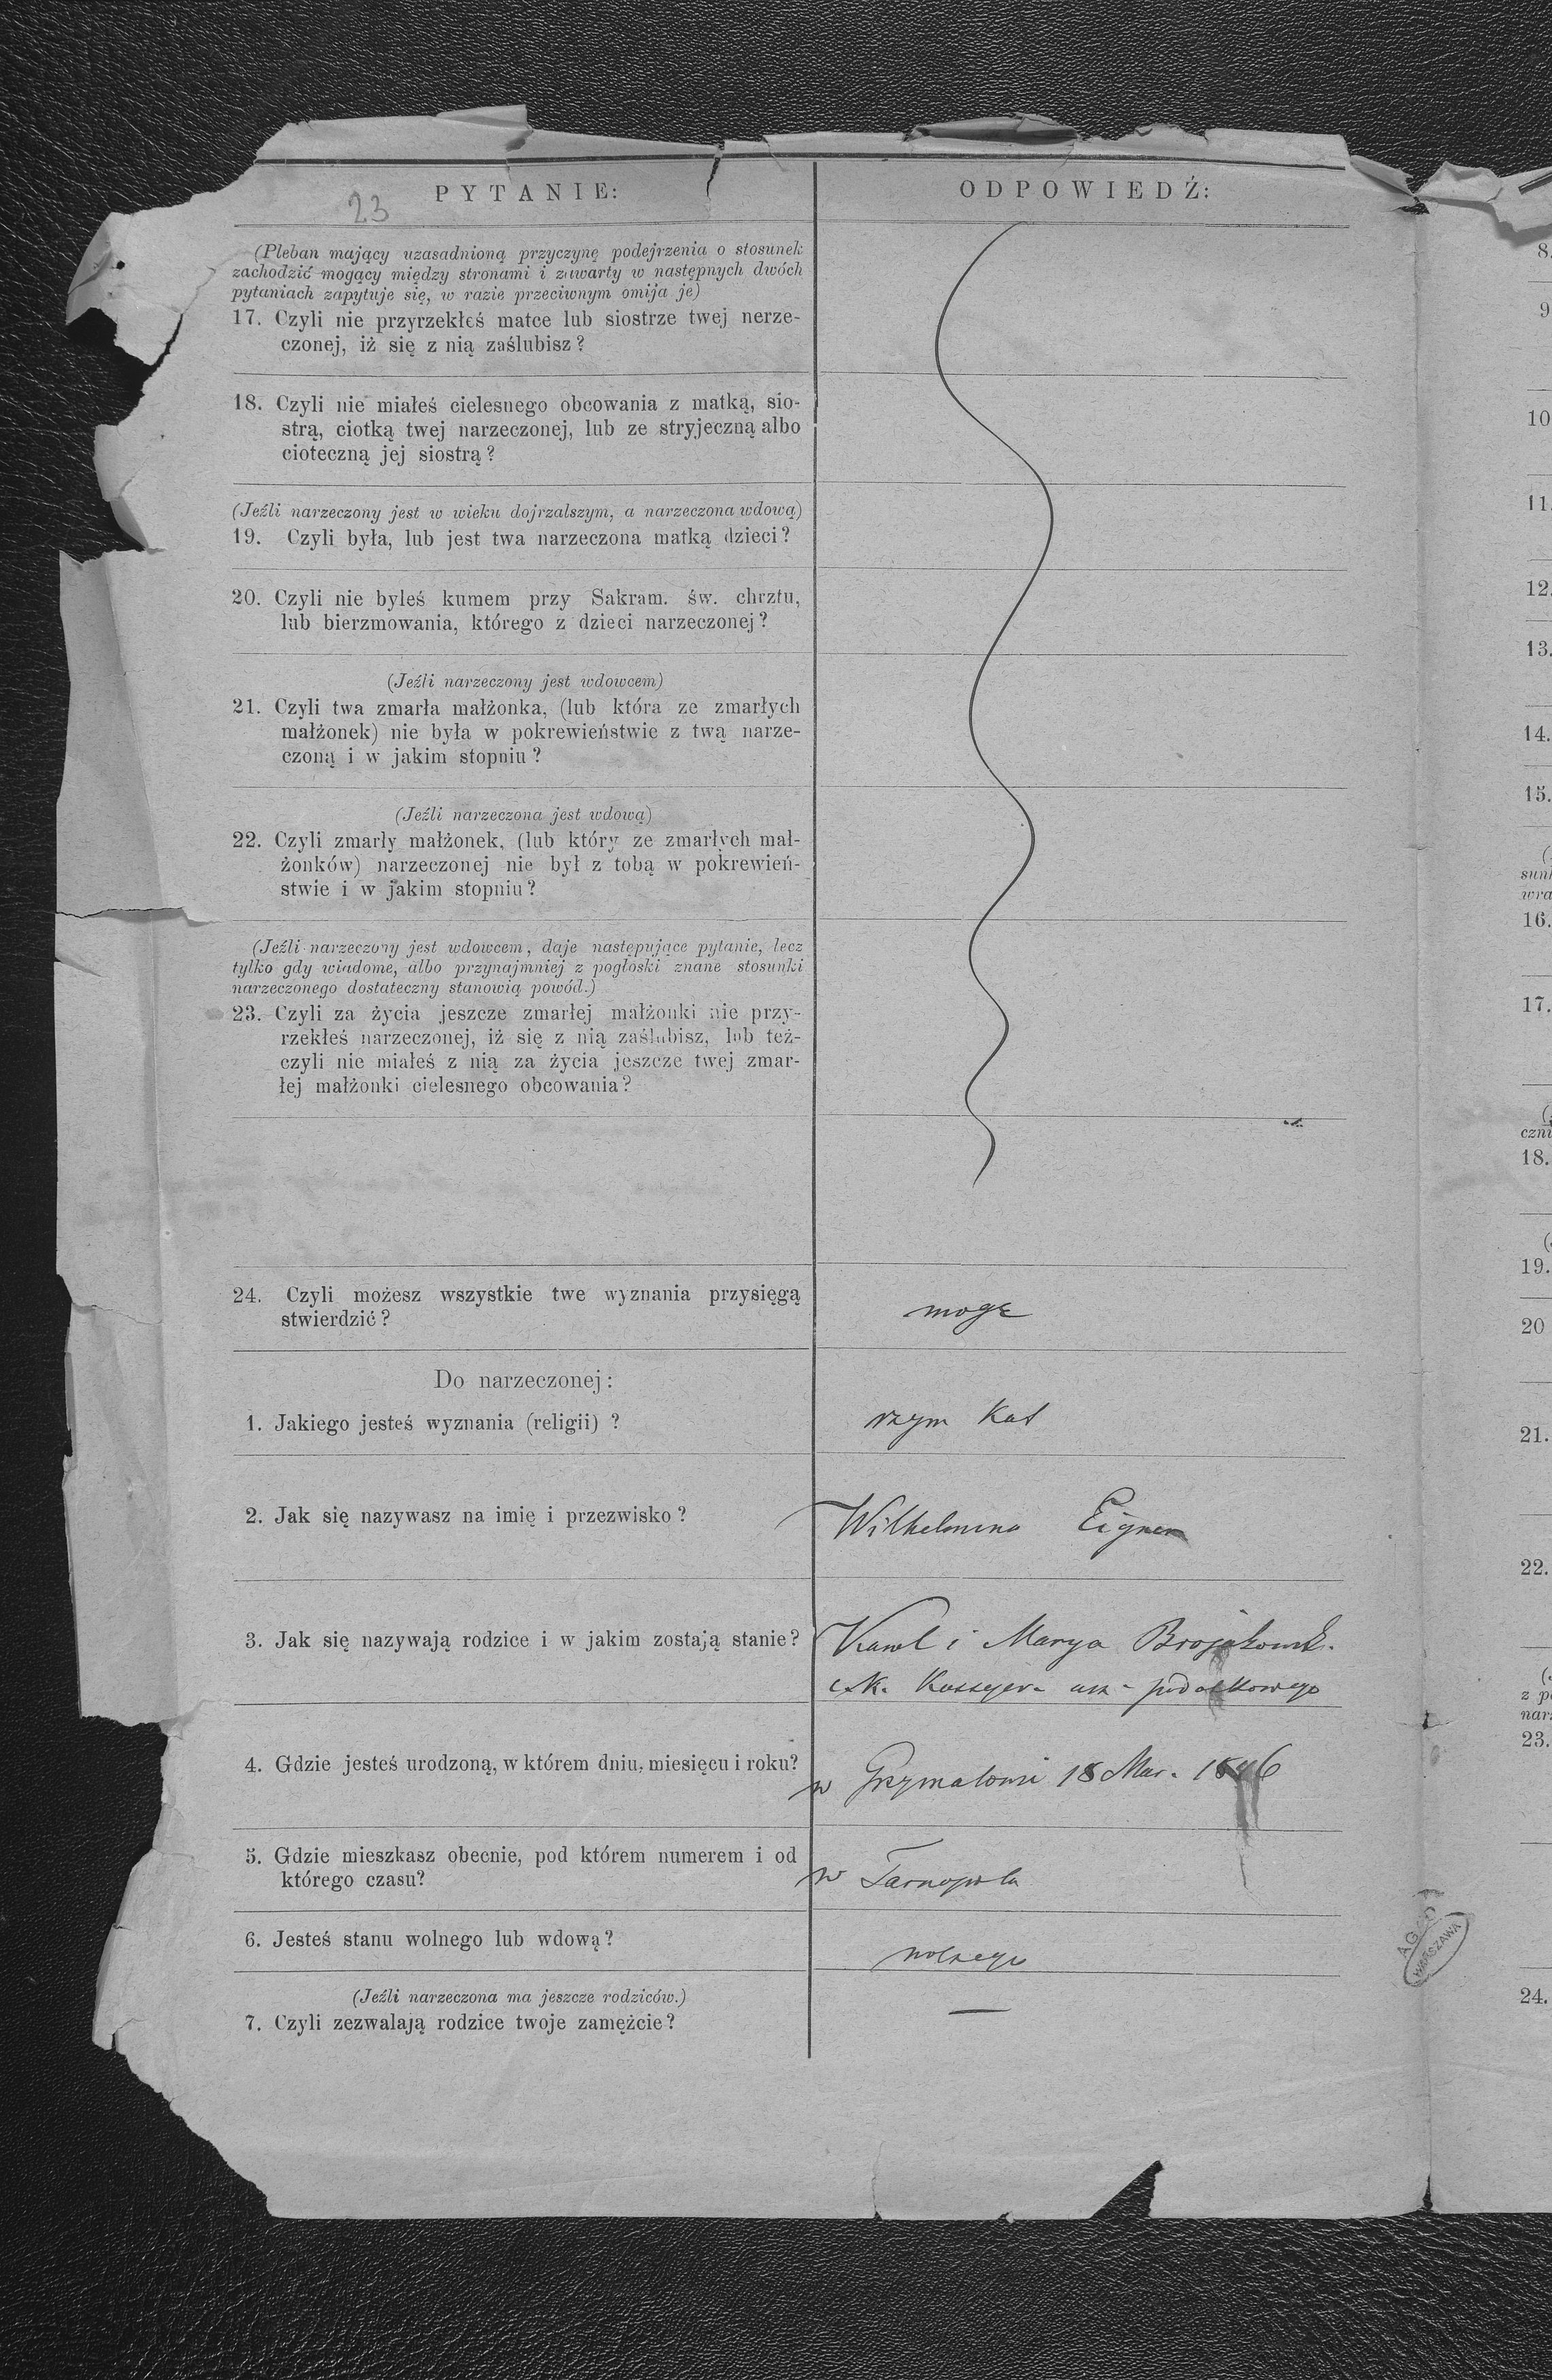 23
PYTANIE:
ODPOWIEDŹ:
(Pleban mający uzasadnioną przyczynę podejrzenia o stosunek
zachodzić mogący między stronami i zawarty w następnych dwóch
pytaniach zapytuje się, w razie przeciwnym omija je)
17. Czyli nie przyrzekłeś matce lub siostrze twej nerze-
czonej, iż się z nią zaślubisz?
18. Czyli nie miałeś cielesnego obcowania z matką, sio-
strą, ciotką twej narzeczonej, lub ze stryjeczną albo
cioteczną jej siostrą?
(Jeźli narzeczony jest w wieku dojrzalszym, a narzeczona wdową)
19. Czyli była, lub jest twa narzeczona matką dzieci?
20. Czyli nie byleś kumem przy Sakram. św. chrztu,
lub bierzmowania, którego z dzieci narzeczonej?
(Jeźli narzeczony jest wdowcem)
21. Czyli twa zmarła małżonka, (lub która ze zmarłych
małżonek) nie była w pokrewieństwie z twą narze-
czoną i w jakim stopniu?
(Jeźli narzeczona jest wdową)
22. Czyli zmarły małżonek, (lub który ze zmarłych mał-
żonków) narzeczonej nie był z tobą w pokrewień-
stwie i w jakim stopniu?
(Jeźli narzeczony jest wdowcem, daje następujące pytanie, lecz
tylko gdy wiadome, albo przynajmniej z pogłoski znane stosunki
narzeczonego dostateczny stanowią powód.)
23. Czyli za życia jeszcze zmarłej małżonki nie przy-
rzekłeś narzeczonej, iż się z nią zaślubisz, lub też
czyli nie miałeś z nią za życia jeszcze twej zmar-
łej małżonki cielesnego obcowania?
24. Czyli możesz wszystkie twe wyznania przysięgą
stwierdzić?
mogę
Do narzeczonej:
1. Jakiego jesteś wyznania (religii) ?
rzym Kat
2. Jak się nazywasz na imię i przezwisko?
Wilhelmina Eigner
3. Jak się nazywają rodzice i w jakim zostają stanie?
Karol i Marya
c.k. Kassyer urz. podatkowego
4. Gdzie jesteś urodzoną, w którem dniu, miesięcu i roku?
w Grzymałowie 18 Mar.
5. Gdzie mieszkasz obecnie, pod którem numerem i od
którego czasu?
w Tarnopolu
6. Jesteś stanu wolnego lub wdową?
wolnego
(Jeźli narzeczona ma jeszcze rodziców.)
7. Czyli zezwalają rodzice twoje zamężcie?
—
AGAD
WARSZAWA
8.
9
10
11.
12.
13.
14.
15.
sunk
wra
16.
17.
czni
18.
19.
20
21.
22.
z p
narz
23.
24.